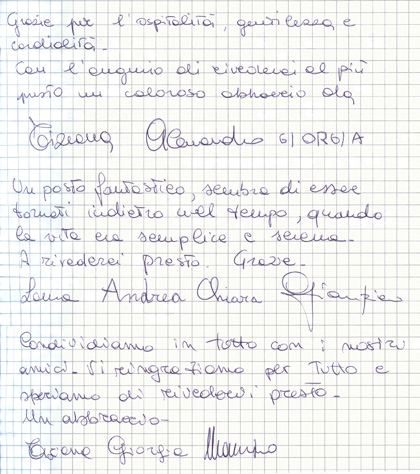 Grazie per l'ospitalità, gentilezza e
cordialità.
Con l'augurio di rivederci al più
presto un caloroso abbraccio da
Tiziana Alessandro GIORGIA
Un posto fantastico, sembra di esser
tornati indietro nel tempo, quando
la vita era semplice e serena.
Arrivederci presto. Grazie.
Andrea Chiara
Condividiamo in tutto con i nostri
amici. Vi ringraziamo per tutto e
speriamo di rivedervi presto.
Un abbraccio.
Giorgia